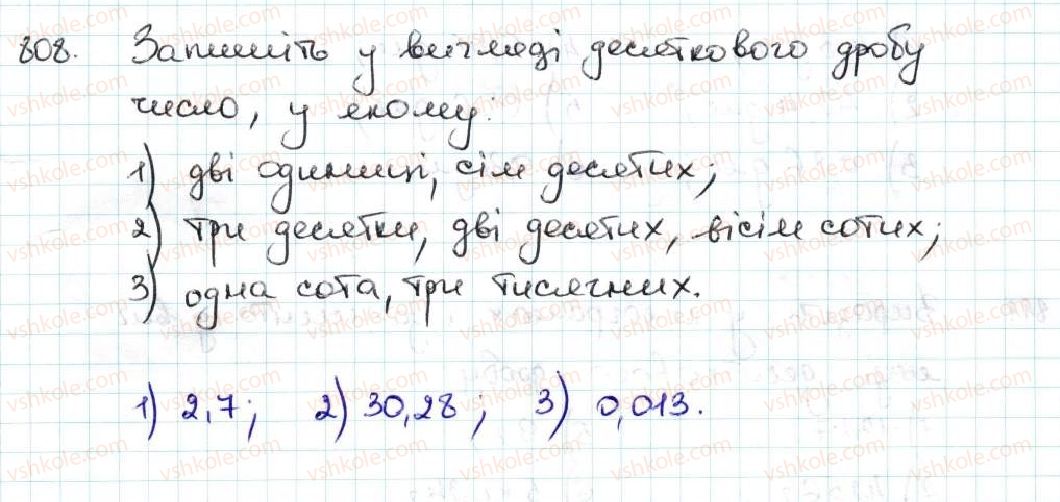 808. Запишіть у вигляді десяткового дробу
число, у якому:
1) дві одиниці, сім десятих;
2) три десятки, дві десятих, вісім сотих;
3) одна сота, три тисячних.
1) 2,7; 2) 30,28; 3) 0,013.